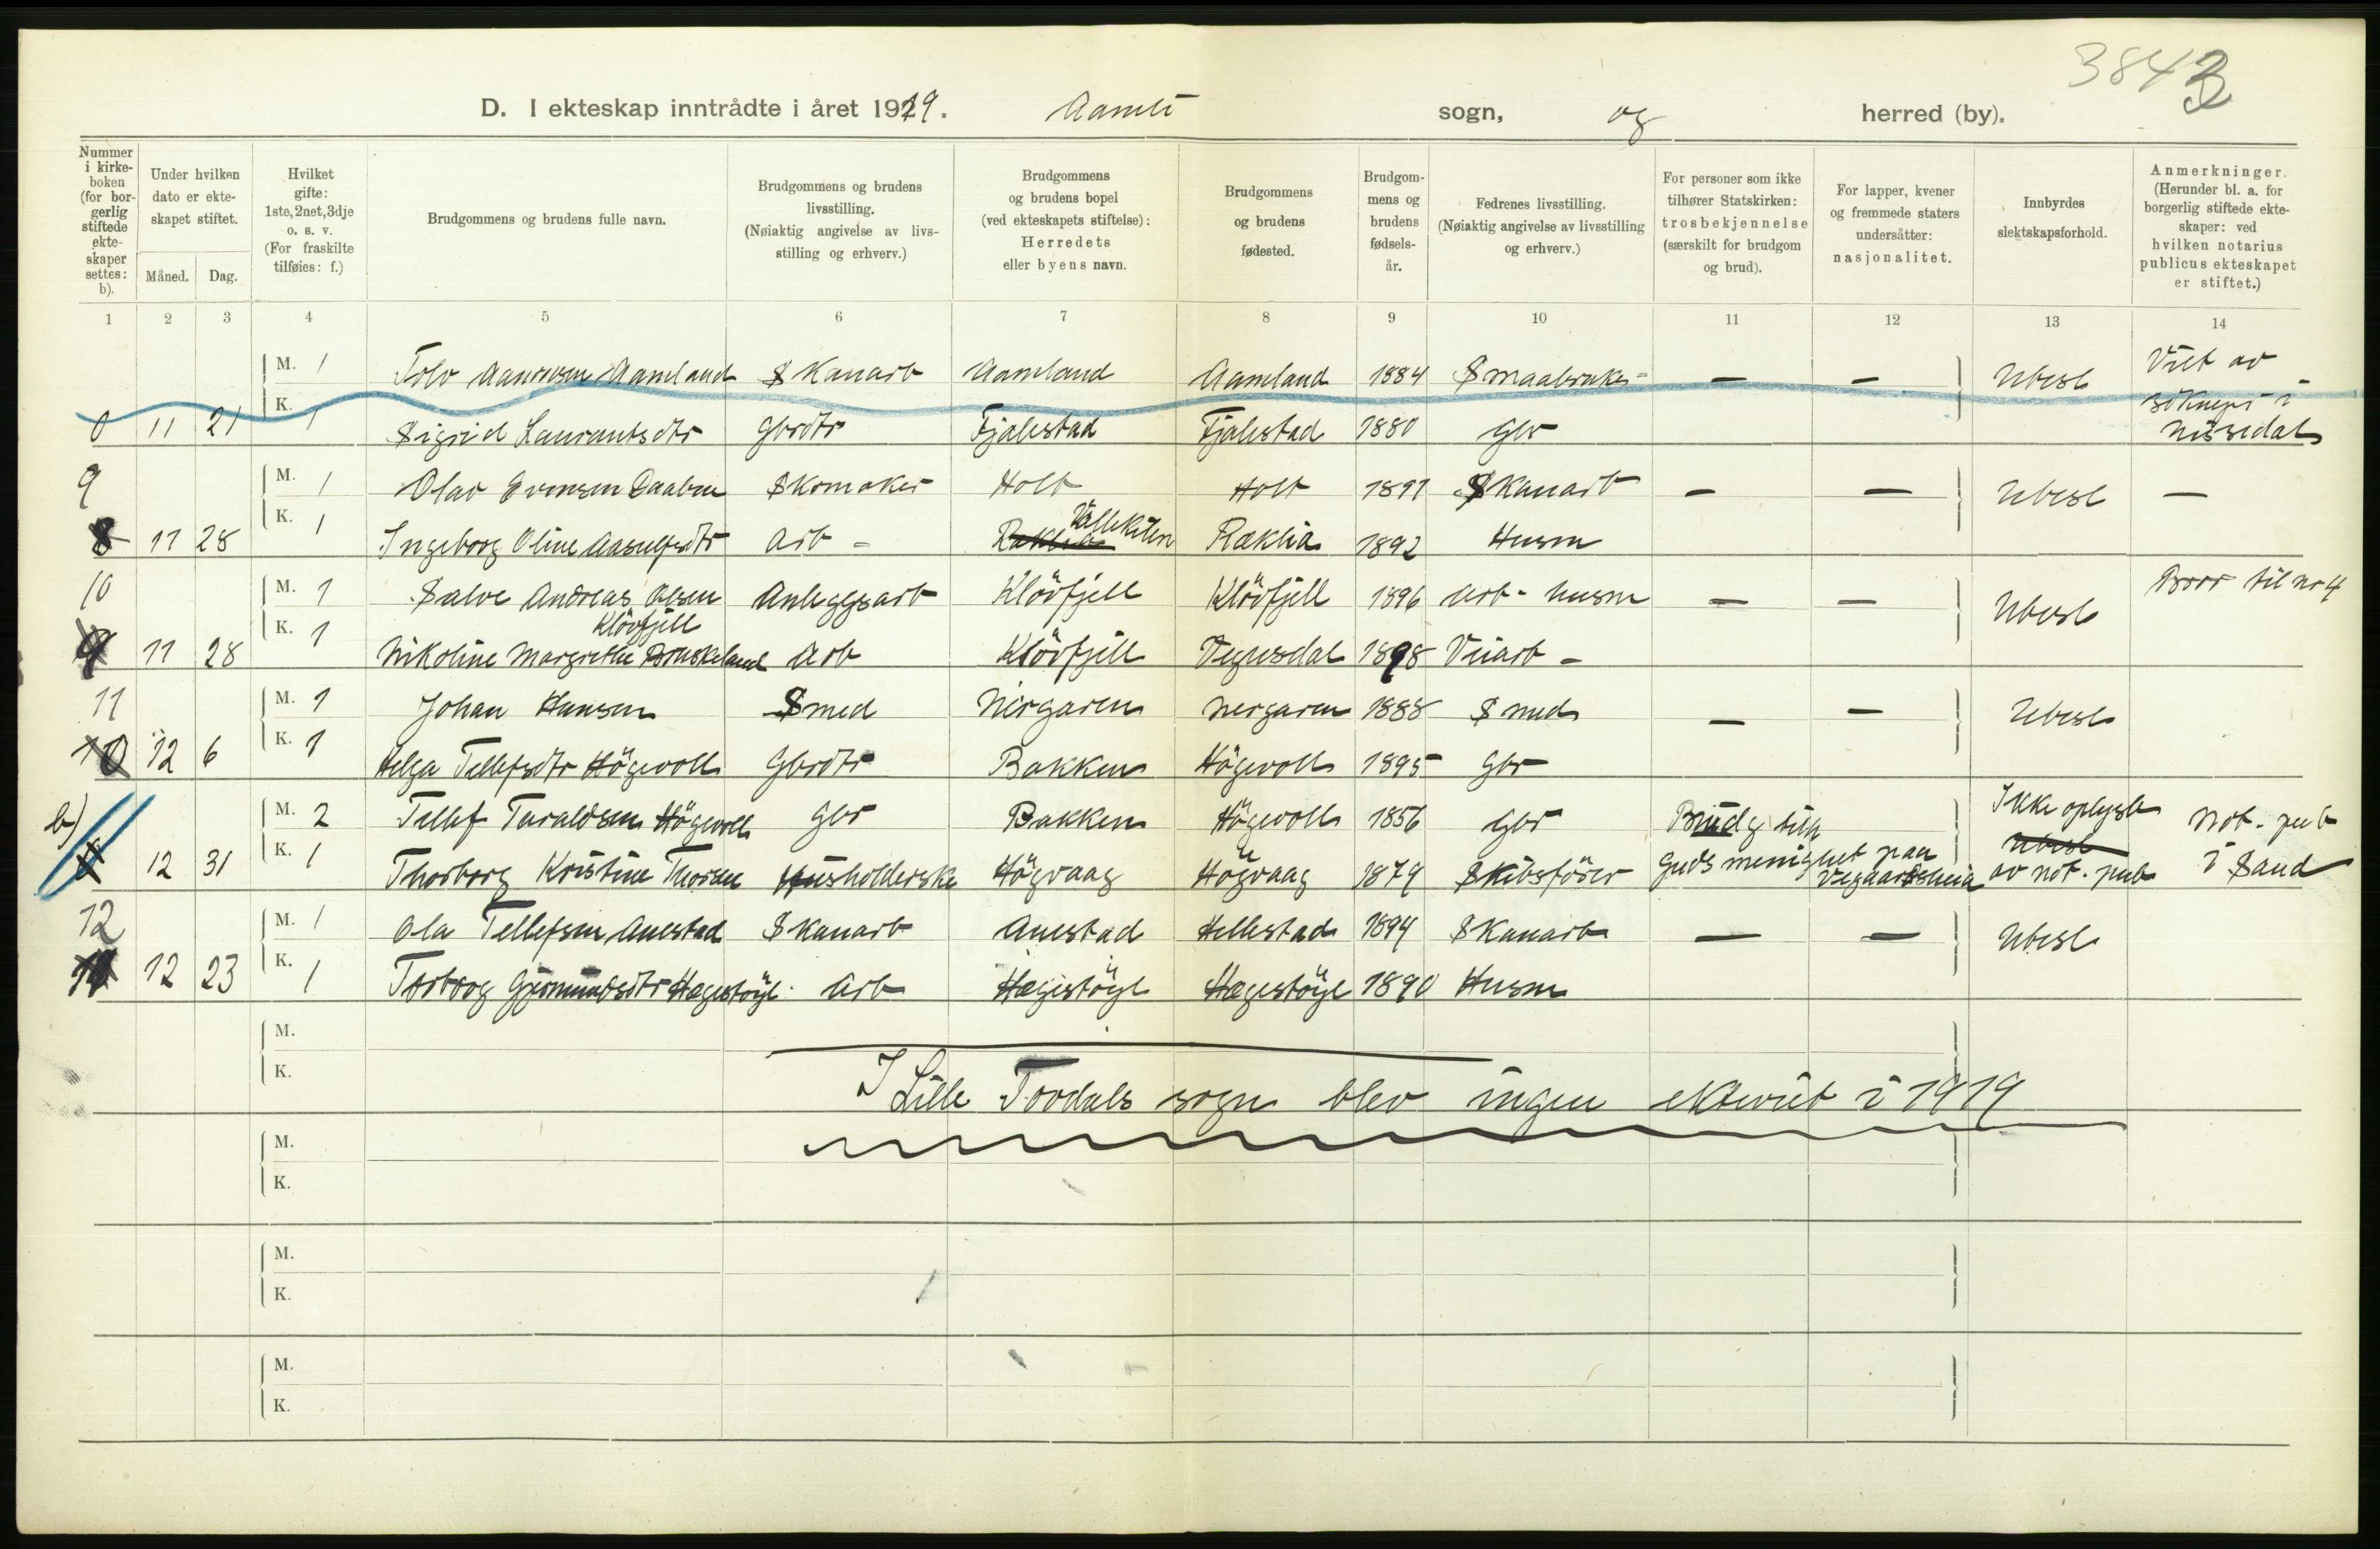 3843
D. I ekteskap inntrådte i året 1919. Aamli sogn, og herred (by).
Nummer i kirkeboken (for borgerlig stiftede ekteskaper settes: b).
Under hvilken dato er ekteskapet stiftet.
Måned. Dag.
Hvilket gifte: 1ste, 2net, 3dje o. s. v. (For fraskilte tilføies: f.)
Brudgommens og brudens fulle navn.
Brudgommens og brudens livsstilling. (Nøiaktig angivelse av livsstilling og erhverv.)
Brudgommens og brudens bopel (ved ekteskapets stiftelse): Herredets eller byens navn.
Brudgommens og brudens fødested.
Brudgommens og brudens fødselsår.
Fedrenes livsstilling. (Nøiaktig angivelse av livsstilling og erhverv.)
For personer som ikke tilhører Statskirken: trosbekjennelse (særskilt for brudgom og brud).
For lapper, kvener og fremmede staters undersåtter: nasjonalitet.
Innbyrdes slektskapsforhold.
Anmerkninger. (Herunder bl. a. for borgerlig stiftede ekteskaper: ved hvilken notarius publicus ekteskapet er stiftet.)
1 2 3 4 5 6 7 8 9 10 11 12 13 14
M. 1 Tolv Aanonsen Aamland Skanarb Aamland Aamland 1884 Smaabruker – – Ubesl Viet av
soknepr i
0 11 21 K. 1 Sigrid Laurantsdtr Gbrdtr Fjalestad Fjalestad 1880 Gbr Nissedal
9 M. 1 Olav Evensen Daalen Skomaker Holt Holt 1891 Skanarb – – Ubesl –
8 11 28 K. 1 Ingeborg Oline Aasulfsdtr Arb – Raklia Vällekilen Ræklia 1892 Husm
10 M. 1 Salve Andreas Olsen Klövfjell Anleggsarb Klövfjell Klövfjell 1896 Arb - husm – – Ubesl Bror til nr 4
9 11 28 K. 1 Nikoline Margrethe Bruskeland Arb Klövfjell Vegusdal 1898 Veiarb –
11 M. 1 Johan Hansen Smed Nergaren Nergaren 1888 Smed – – Ubesl
10 12 6 K. 1 Helga Tellefsdtr Högevoll Gbrdtr Bakken Högevoll 1895 Gbr
b) M. 2 Tellef Taraldsen Högevoll Gbr Bakken Högevoll 1856 Gbr Brudg tilh Ikke oplyst Not. pub
12 31 K. 1 Thorborg Kristine Thorsen Husholderske Högvaag Högvaag 1879 Skibsförer Guds menighet paa Vegaardsheia Ubesl av not. pub i Sand
12 M. 1 Ola Tellefsen Anestad Skanarb Anestad Hellestad 1894 Skanarb – – Ubesl
11 12 23 K. 1 Torborg Gjermundsdtr Hægestöyl Arb Hægestöyl Hægestöyl 1890 Husm
M.
K.
I Lille Tovdals sogn blev ingen ekteviet i 1919
M.
K.
M.
K.
M.
K.